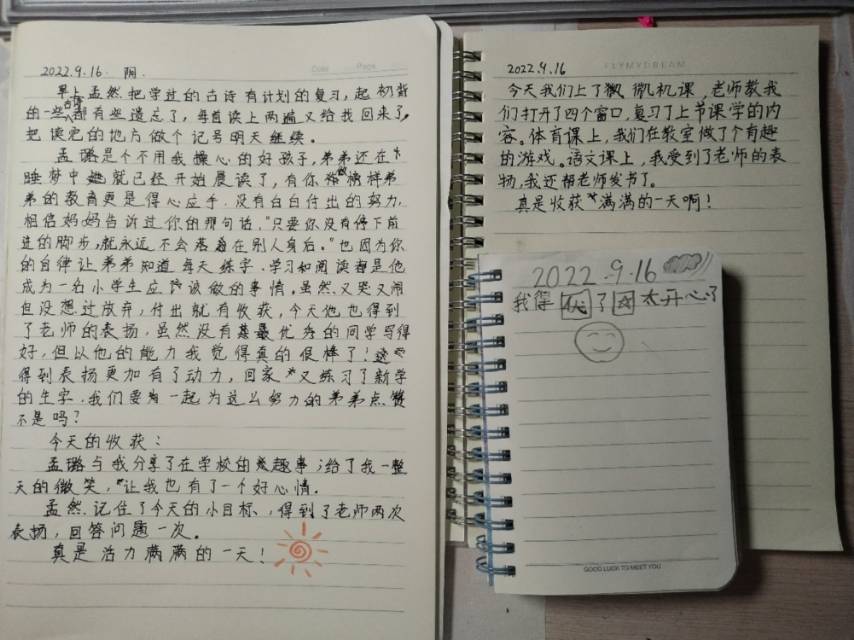 2022.9.16. 阴.
Date Page
早上孟然把学过的古诗有计划的复习,起初背
的一些古诗都有些遗忘了,每首读上两遍又给我回来了,
把读完的地方做个记号明天继续。
孟璐是个不用我操心的好孩子,弟弟还在
睡梦中她就已经开始晨读了,有你做榜样弟
弟的教育更是得心应手.没有白白付出的努力,
相信妈妈告诉过你的那句话,"只要你没有停下前
进的脚步,就永远不会落在别人身后。"也因为你
的自律让弟弟知道每天练字.学习如阅读都是他
成为一名小学生应该做的事情.虽然又哭又闹
但没想过放弃,付出就有收获,今天他也得到
了老师的表扬,虽然没有最优秀的同学写得
好,但以他的能力我觉得真的很棒了!
得到表扬更加有了动力,回家又练习了新学
的生字.我们要一起为这么努力的弟弟点赞
不是吗?
今天的收获:
孟璐与我分享了在学校的趣事;给了我一整
天的微笑,让我也有了一个好心情.
孟然.记住了今天的小目标,得到了老师两次
表扬,回答问题一次。
真是活力满满的一天!
FLYMYDREAM
2022.9.16
今天我们上了微机课,老师教我
们打开了四个窗口,复习了上节课学的内
容。体育课上,我们在教室做了个有趣
的游戏。语文课上,我受到了老师的表
扬,我还帮老师发书了。
真是收获满满的一天啊!
2022.9.16
我得了太开心了
GOOD LUCK TO MEET YOU